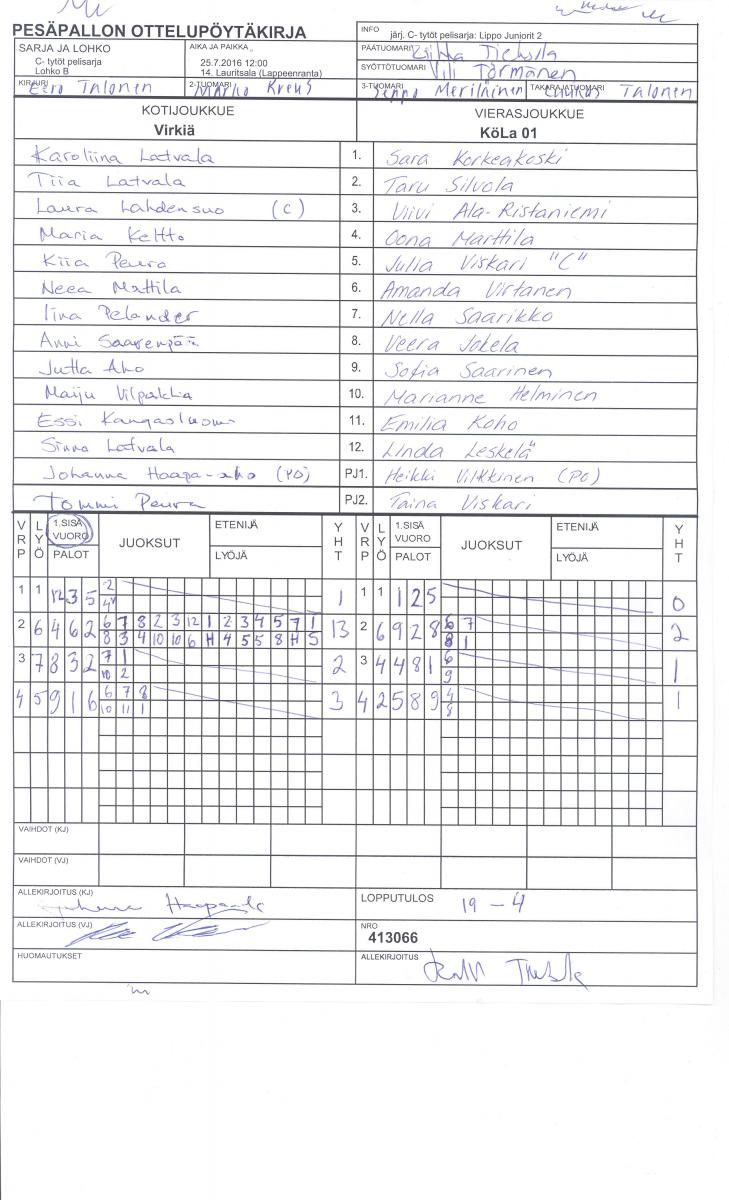 PESÄPALLON OTTELUPÖYTÄKIRJA
INFO järj. C- tytöt pelisarja: Lippo Juniorit 2
SARJA JA LOHKO
C- tytöt pelisarja
Lohko B
AIKA JA PAIKKA
25.7.2016 12:00
14. Lauritsala (Lappeenranta)
PÄÄTUOMARI
SYÖTTÖTUOMARI Vili Törmänen
KIRJURI Eero Talonen
2-TUOMARI Marko Kreus
3-TUOMARI Seppo Meriläinen
TAKARAJATUOMARI Luukas Talonen
KOTIJOUKKUE
Virkiä
VIERASJOUKKUE
KöLa 01
Karoliina Latvala 1. Sara Korkeakoski
Tiia Latvala 2. Taru Silvola
Laura Lahdensuo (C) 3. Viivi Ala-Ristaniemi
Maria Keltto 4. Oona Marttila
Kiia Peura 5. Julia Viskari "C"
Neea Mattila 6. Amanda Virtanen
Iina Pelander 7. Nella Saarikko
Anni Saarenpää 8. Veera Jokela
Jutta Aho 9. Sofia Saarinen
Maiju Vilpakka 10. Marianne Helminen
Essi Kangasluoma 11. Emilia Koho
Sinna Latvala 12. Linda Leskelä
Johanna Haapa-aho (PJ) PJ1. Heikki Vilkkinen (PJ)
Tommi Peura PJ2. Taina Viskari
VRP LYÖ 1.SISÄ VUORO PALOT JUOKSUT ETENIJÄ LYÖJÄ YHT VRP LYÖ 1.SISÄ VUORO PALOT JUOKSUT ETENIJÄ LYÖJÄ YHT
1 1 12 3 5 2 1 1 1 1 2 5 0
4
2 6 4 6 2 6 7 8 2 3 12 1 2 3 4 5 7 1 13 2 6 9 2 8 6 7 2
8 3 4 10 10 6 H 4 5 5 8 H 5 8 1
3 7 8 3 2 7 1 2 3 4 4 8 1 6 1
10 2 9
4 5 9 1 6 6 7 8 3 4 2 5 8 9 4 1
10 11 1 8
VAIHDOT (KJ)
VAIHDOT (VJ)
ALLEKIRJOITUS (KJ)
LOPPUTULOS 19 - 4
ALLEKIRJOITUS (VJ)
NRO
413066
HUOMAUTUKSET
ALLEKIRJOITUS